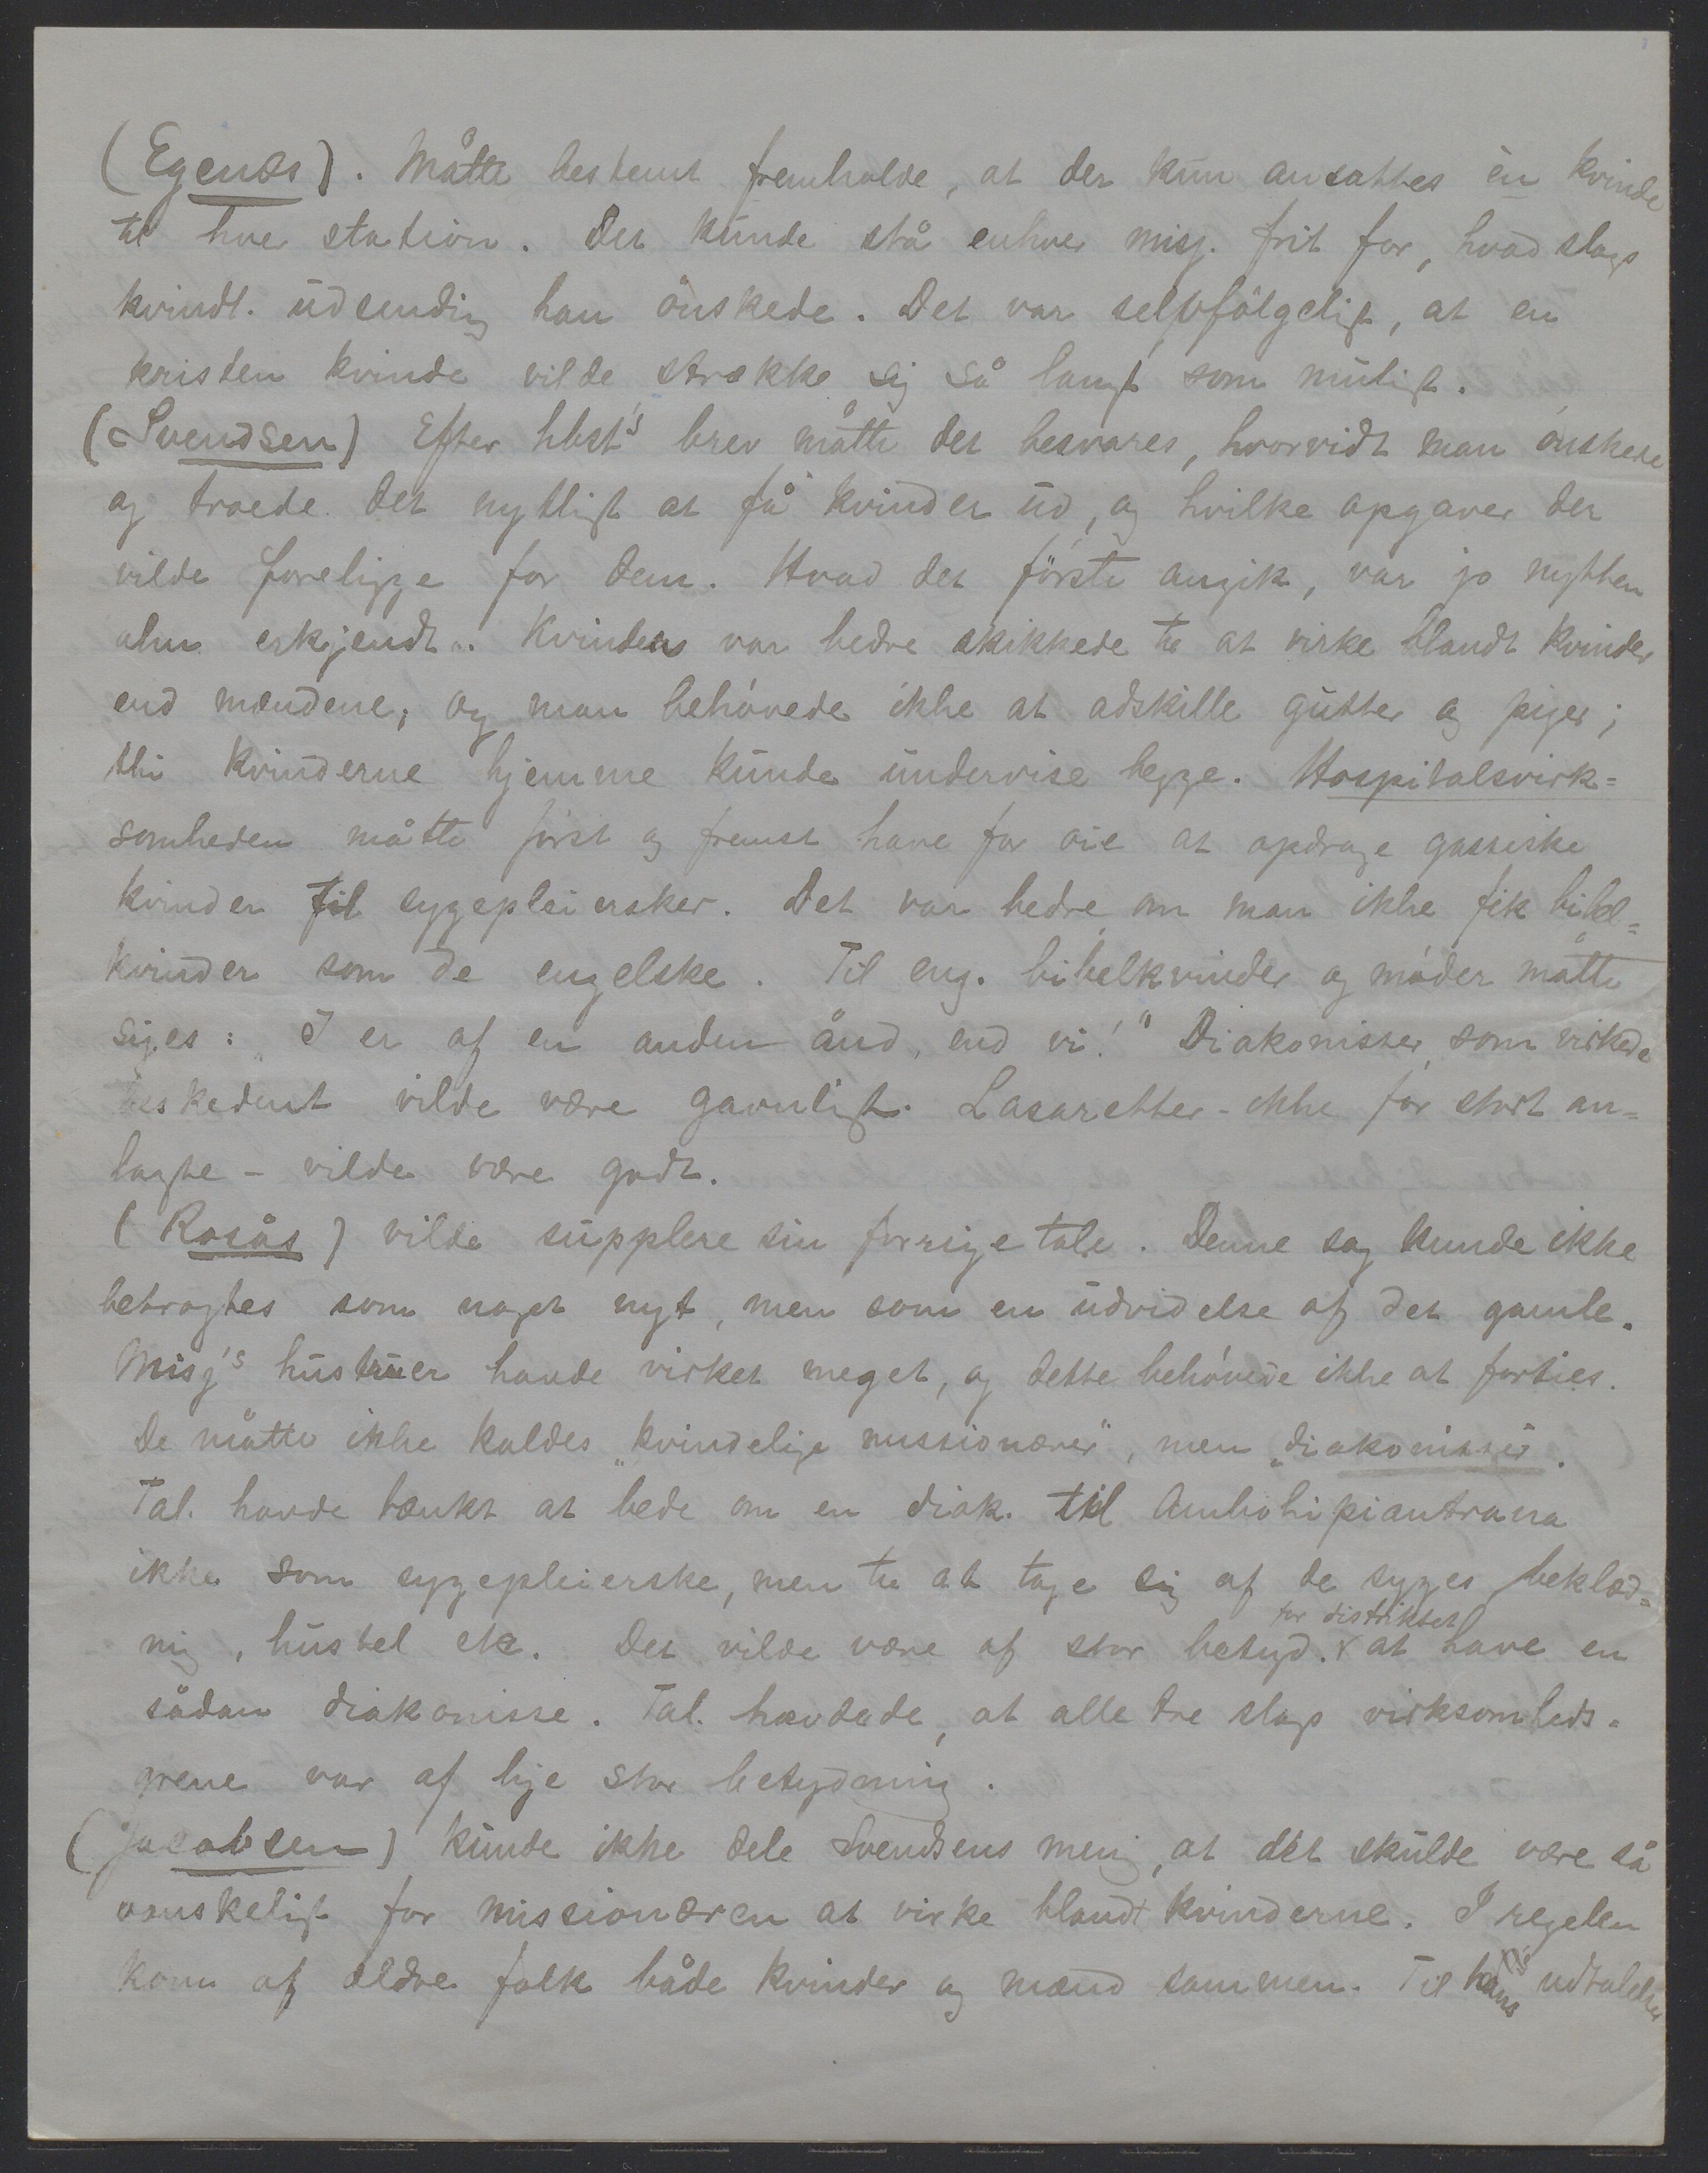 (Egenæs). Måtte bestemt fremholde, at der kun ansattes èn kvinde
til hver station. Det kunde stå enhver misj. frit for, hvad slags
kvindl. udsending han ønskede. Det var selvfølgeligt, at en
kristen kvinde vilde strække sig så langt som muligt.
(Svendsen) Efter hbst's brev måtte det besvares, hvorvidt man ønskede
og troede det nyttigt at få kvinder ud, og hvilke opgaver der
vilde foreligge for dem. Hvad det første angik, var jo nytten
alm erkjendt. Kvinden var bedre skikkede til at virke blandt kvinder
end mændene; og man behøvede ikke at adskille gutter og piger;
thi kvinderne hjemme kunde undervise begge. Hospitalsvirk=
somheden måtte først og fremst have for øie at opdrage gassiske
kvinder til sygepleiersker. Det var bedre om man ikke fik bibel=
kvinder som de engelske. Til eng. bibelkvinder og møder måtte
siges: „I er af en anden ånd, end vi!" Diakonisser, som virkede
beskedent vilde være gavnligt. Lasaretter - ikke for stort an=
lagte - vilde være godt.
(Rosås) vilde supplere sin forrige tale. Denne sag kunde ikke
betragtes som noget nyt, men som en udvidelse af det gamle.
Misj's hustruer havde virket meget, og dette behøvede ikke at forties.
De måtte ikke kaldes „kvindelige missionærer", men „diakonisser.
Tal. havde tænkt at bede om en diak. til Ambohipiantrana
ikke som sygepleierske, men til at tage sig af de syges beklæd=
ning, hustel etc. Det vilde være af stor betyd. for distriktet at have en
sådan diakonisse. Tal. hævdede, at alle tre slags virksomheds=
grene var af lige stor betydning.
(Jacobsen) kunde ikke dele Svendsens mening, at det skulde være så
vanskeligt for missionæren at virke blandt kvinderne. I regelen
kom af ældre folk både kvinder og mænd sammen. Til hans udtalelse